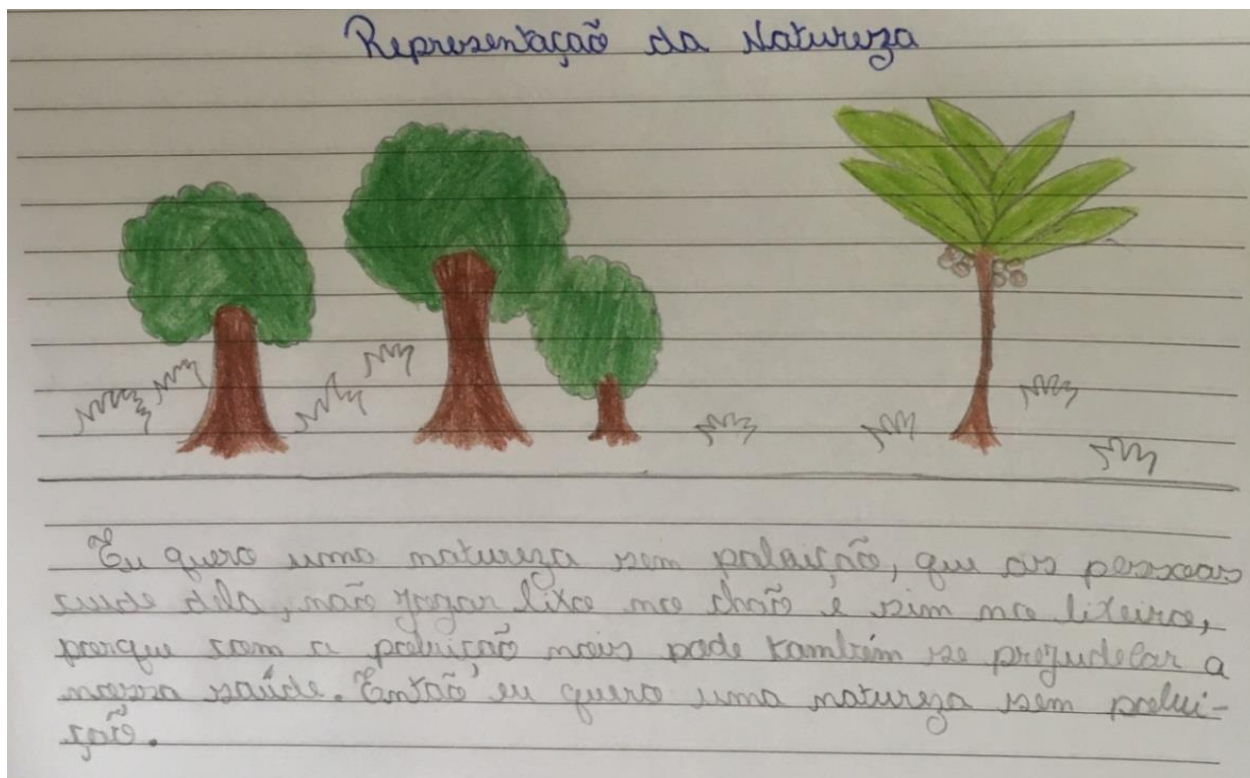 Representação da Natureza
Eu quero uma natureza sem poluição, que as pessoas
cuide dela, não jogar lixo no chão é sim no lixeiro,
porque com a poluição nois pode também se prejudicar a
nossa saúde. Então eu quero uma natureza sem polui-
ção.